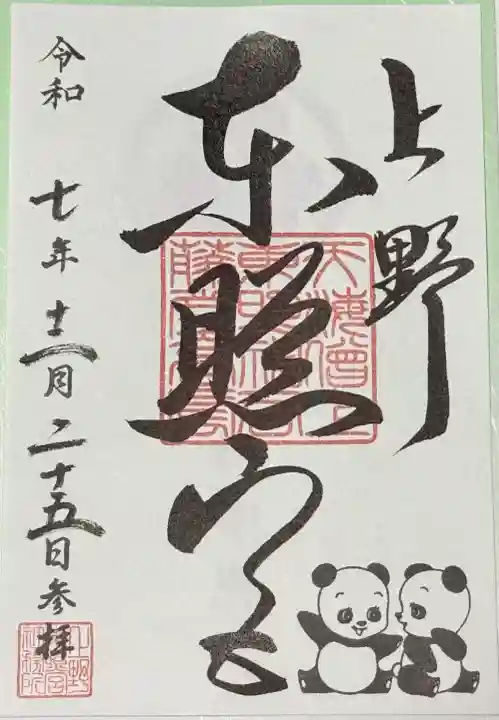 上野
東照宮
天海僧正
藤堂高虎
令和 七年 十二月 二十五日参拝
上野
東照宮
社務所